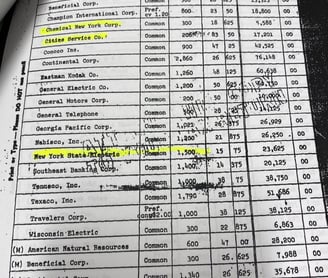 Beneficial Corp.
Champion International Corp. Pref. cv 1.20 800 23 50 18,800 00
Chemical New York Corp. Common 300 18 625
Cities Service Co. Common 83 50 17,201 00
Conoco Inc. Common 900 47 25 42,525 00
Continental Corp. Common 2,860 26 625 76,148 00
Eastman Kodak Co. Common 1,260 48 125 60,638 00
General Electric Co. Common 1,200 50 00
General Motors Corp. Common 00
General Telephone Common 00
Georgia Pacific Corp. Common 26,929 00
Nabisco, Inc. Common 1,200 21 875 26,250 00
New York State Electric Common 1,500 15 75 23,625 00
Southeast Banking Corp. Common 1,400 14 375 20,125 00
Tenneco, Inc. Common 38 75 38,750 00
Texaco, Inc. Common 1,790 28 875 51,686 00
Travelers Corp. Pref. 1,000 38 125 38,125 00
Wisconsin Electric Common 300 22 875 6,863 00
(M) American Natural Resources Common 600 47 00 28,200 00
(M) Beneficial Corp. Common 300 26 625 7,988 00
Common 1,340 26 625 35,678 00
Please DO NOT